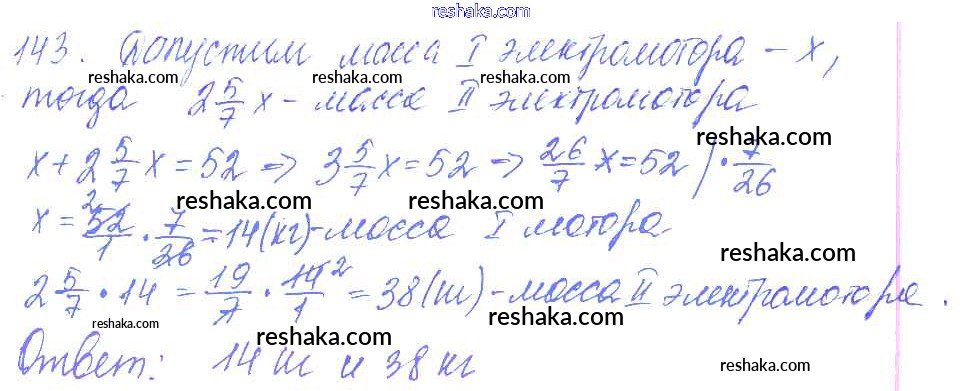 reshaka.com
143. Допустим масса I электромотора – x,
reshaka.com reshaka.com
тогда 2 5/7 x – масса II электромотора
reshaka.com reshaka.com
x + 2 5/7 x = 52 => 3 5/7 x = 52 => 26/7 x = 52 | · 7/26
reshaka.com reshaka.com
x = 52/1 · 7/26 = 14 (кг) – масса I мотора
2
reshaka.com
2 5/7 · 14 = 19/7 · 14/1 = 38 (кг) – масса II электромотора.
2
reshaka.com reshaka.com reshaka.com
Ответ: 14 кг и 38 кг
reshaka.com reshaka.com